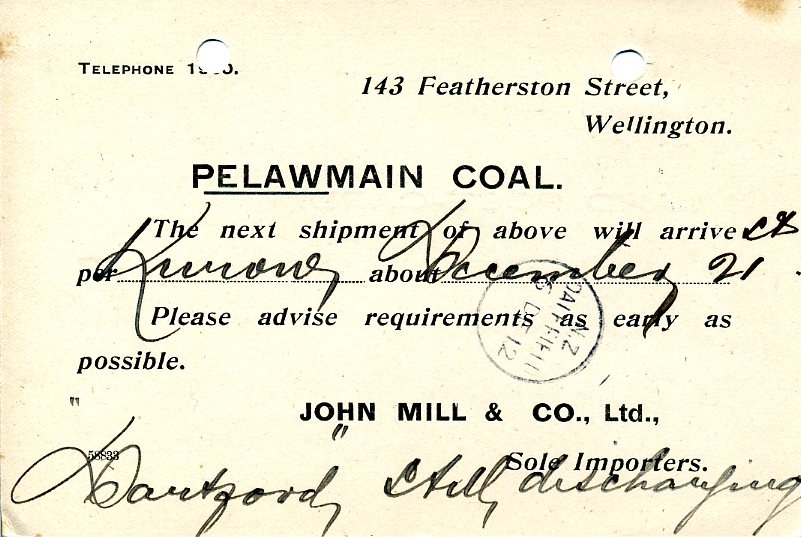 TELEPHONE
143 Featherston Street,
Wellington.
PELAWMAIN COAL.
The next shipment of above will arrive
per Kurow about December 21
Please advise requirements as early as
possible.
N.Z
DEC 12
" JOHN MILL & CO., Ltd.,
"
58833 Sole Importers.
Dartford still discharging